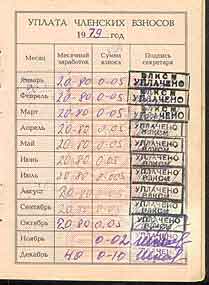 УПЛАТА ЧЛЕНСКИХ ВЗНОСОВ
1979 год
Месяц Месячный заработок Сумма взноса Подпись секретаря
Январь 20-80 0-05 ВЛКСМ УПЛАЧЕНО
Февраль 20-80 0-05 ВЛКСМ УПЛАЧЕНО
Март 20-80 0-05 ВЛКСМ УПЛАЧЕНО
Апрель 20-80 0-05 УПЛАЧЕНО ВЛКСМ
Май 20-80 0-05 УПЛАЧЕНО ВЛКСМ
Июнь 20-80 0.05 УПЛАЧЕНО ВЛКСМ
Июль 20-80 УПЛАЧЕНО ВЛКСМ
Август 20-80 0-05 УПЛАЧЕНО ВЛКСМ
Сентябрь 20-80 УПЛАЧЕНО ВЛКСМ
Октябрь 20-80 0.05 УПЛАЧЕНО ВЛКСМ
Ноябрь 0-02
Декабрь 40 0-10